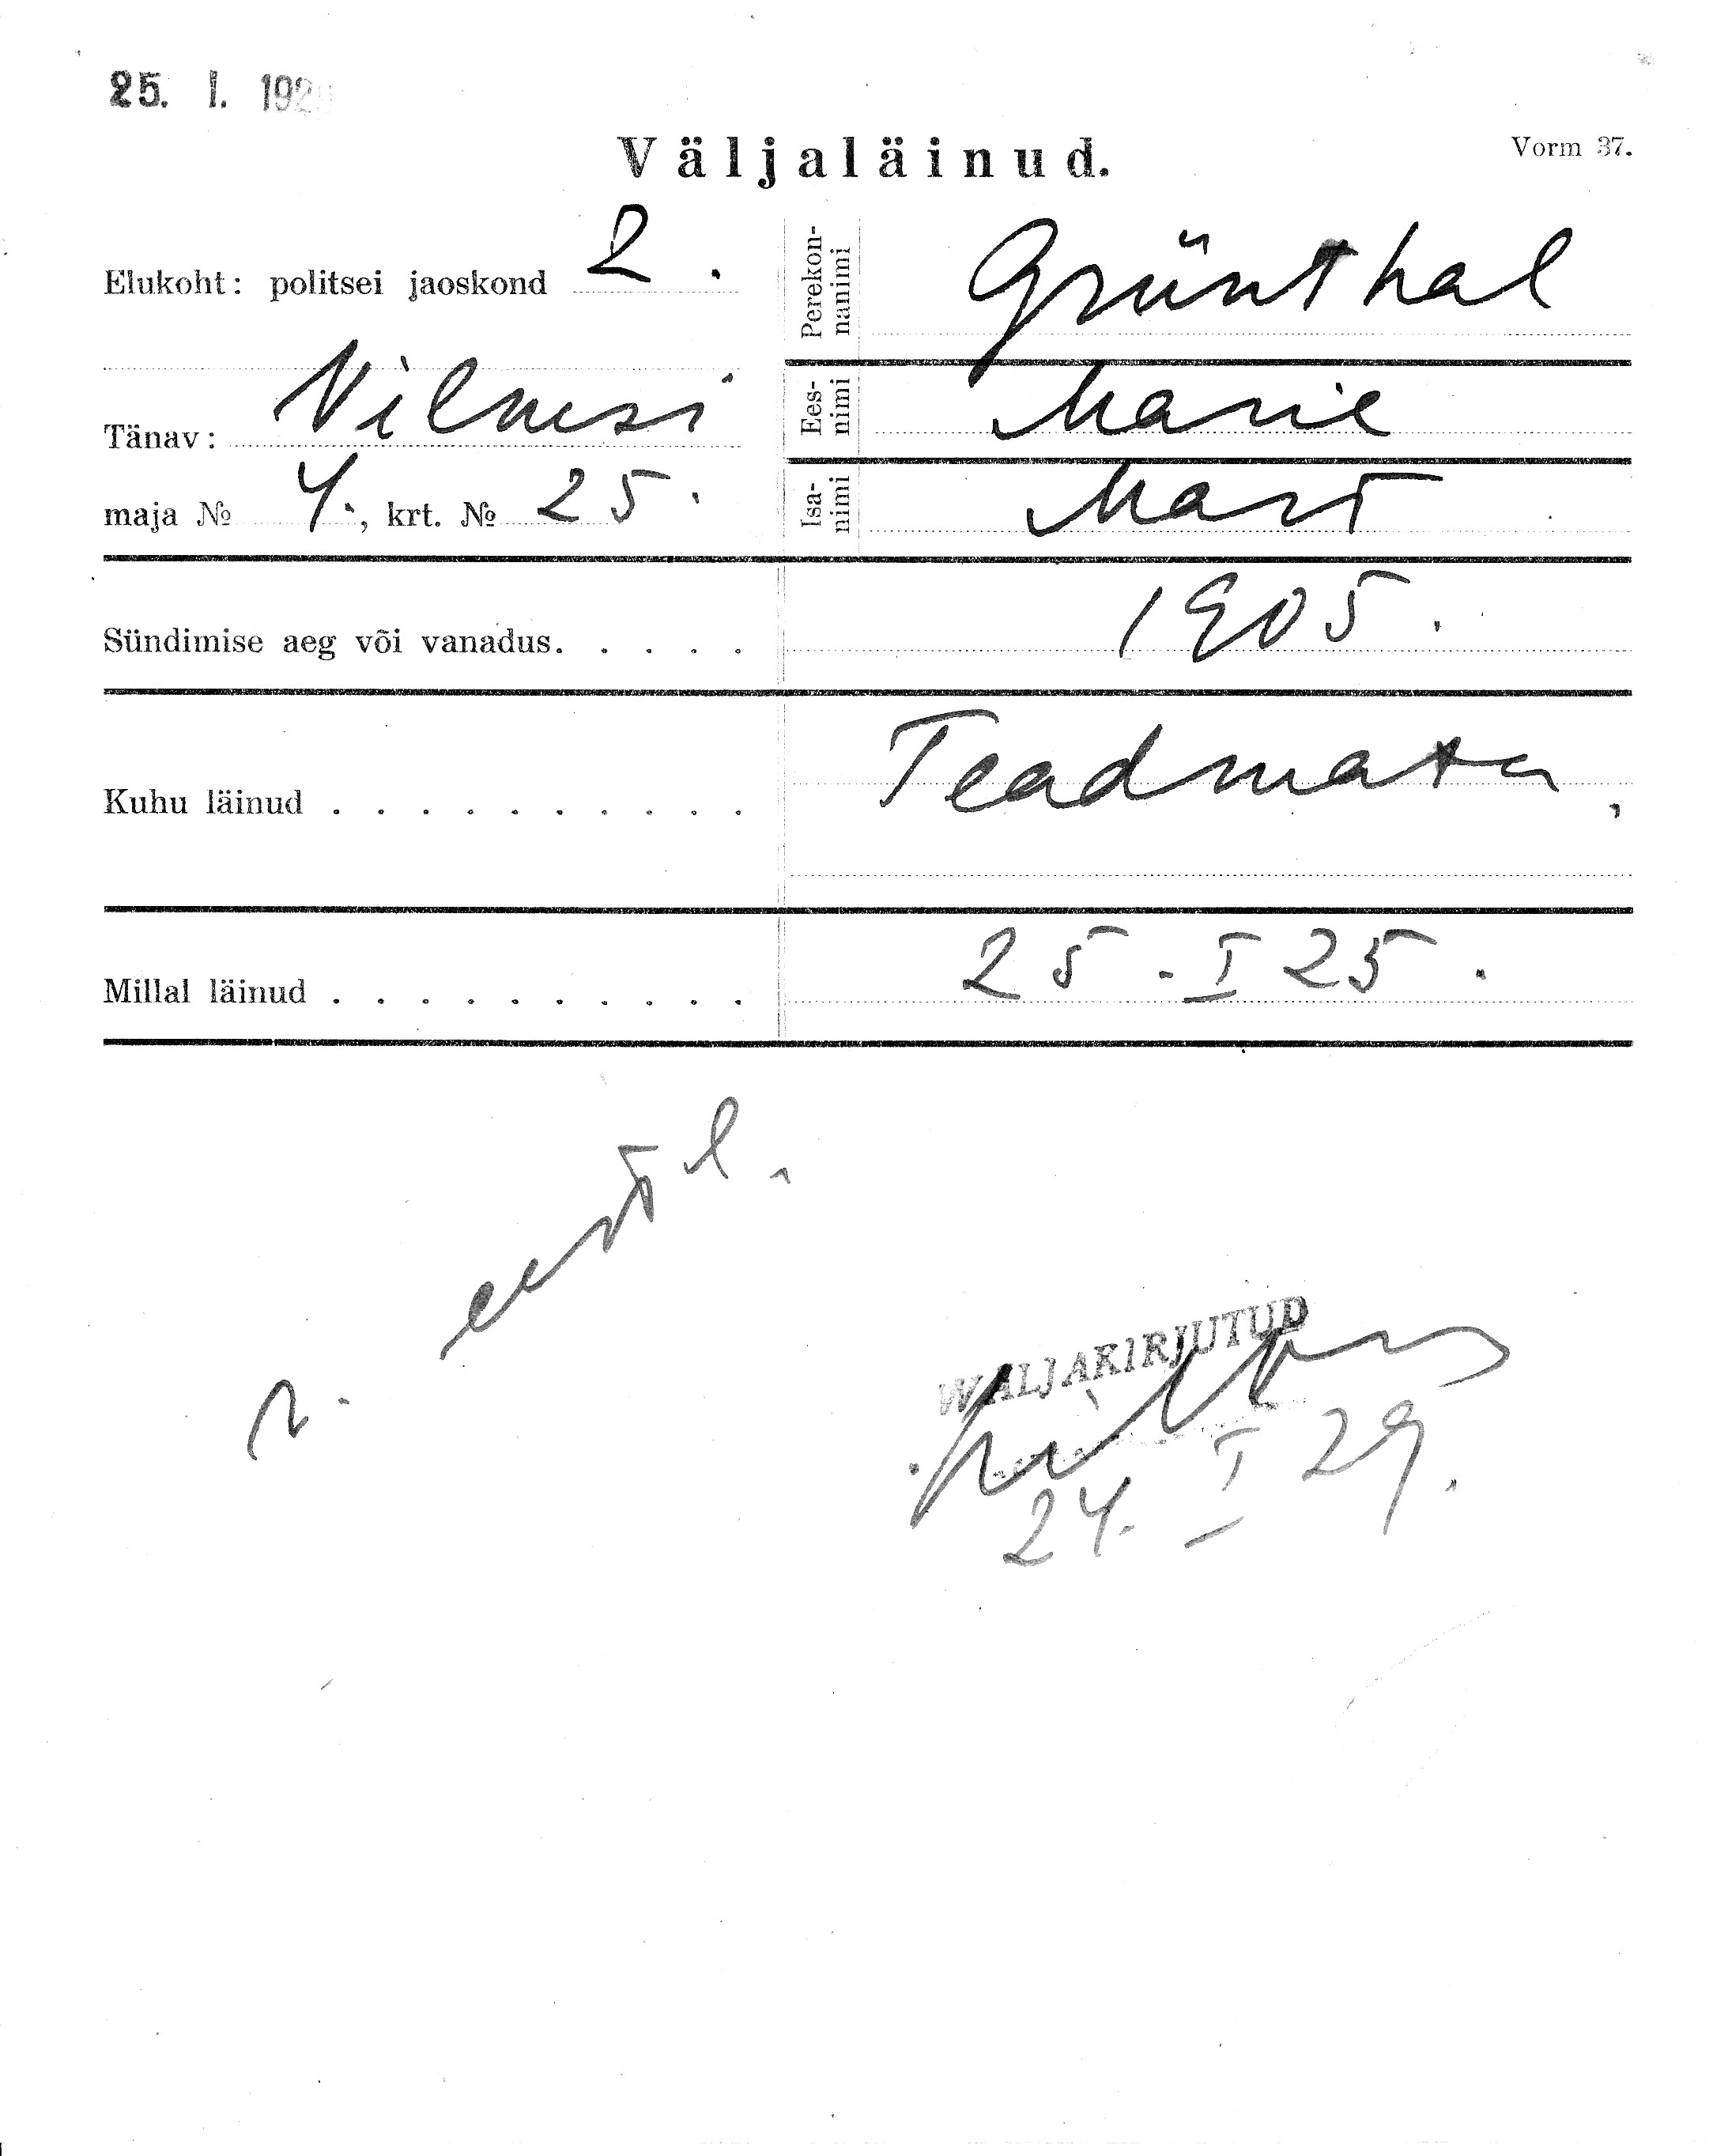 25. I. 192
Väljaläinud.
Vorm 37.
Elukoht: politsei jaoskond 2.
Tänav: Vilmsi
maja № 4., krt. № 25.
Perekon-
nanimi
Grünthal
Ees-
nimi
Marie
Isa-
nimi
Mart
Sündimise aeg või vanadus. . . . . 1905.
Kuhu läinud . . . . . . . . . . Teadmata,
Millal läinud . . . . . . . . . . 25. I 25.
WÄLJAKIRJUTUD
24. I 29.